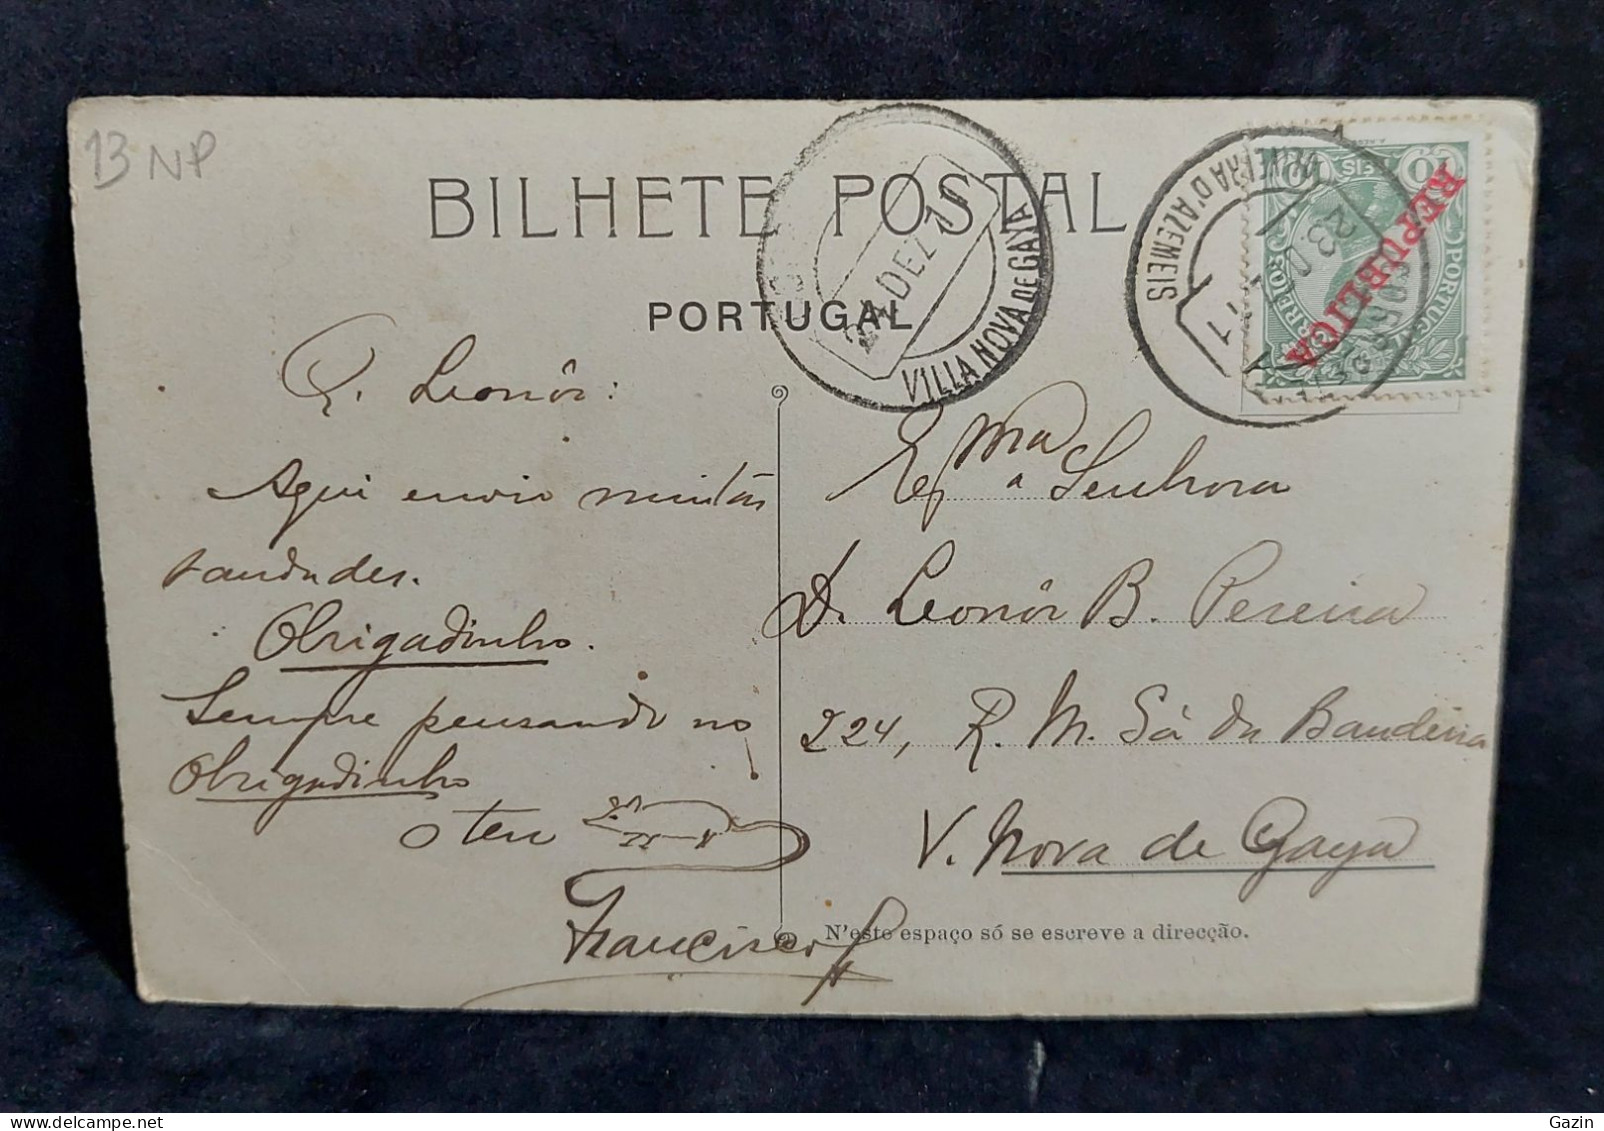 13 NP
BILHETE POSTAL
PORTUGAL
24 DEZ 11
VILLA NOVA DE GAYA
OLIVEIRA D'AZEMEIS
CORREIOS
PORTUGAL
10 REIS 10
REPUBLICA
Q. Leonôr:
Aqui envio muitas
saudades.
Obrigadinho.
Sempre pensando no
Obrigadinho
o teu
Francisco
Exma Senhora
D. Leonôr B. Pereira
224, R. M. Sá da Bandeira
V. Nova de Gaya
N'este espaço só se escreve a direcção.
Gazin